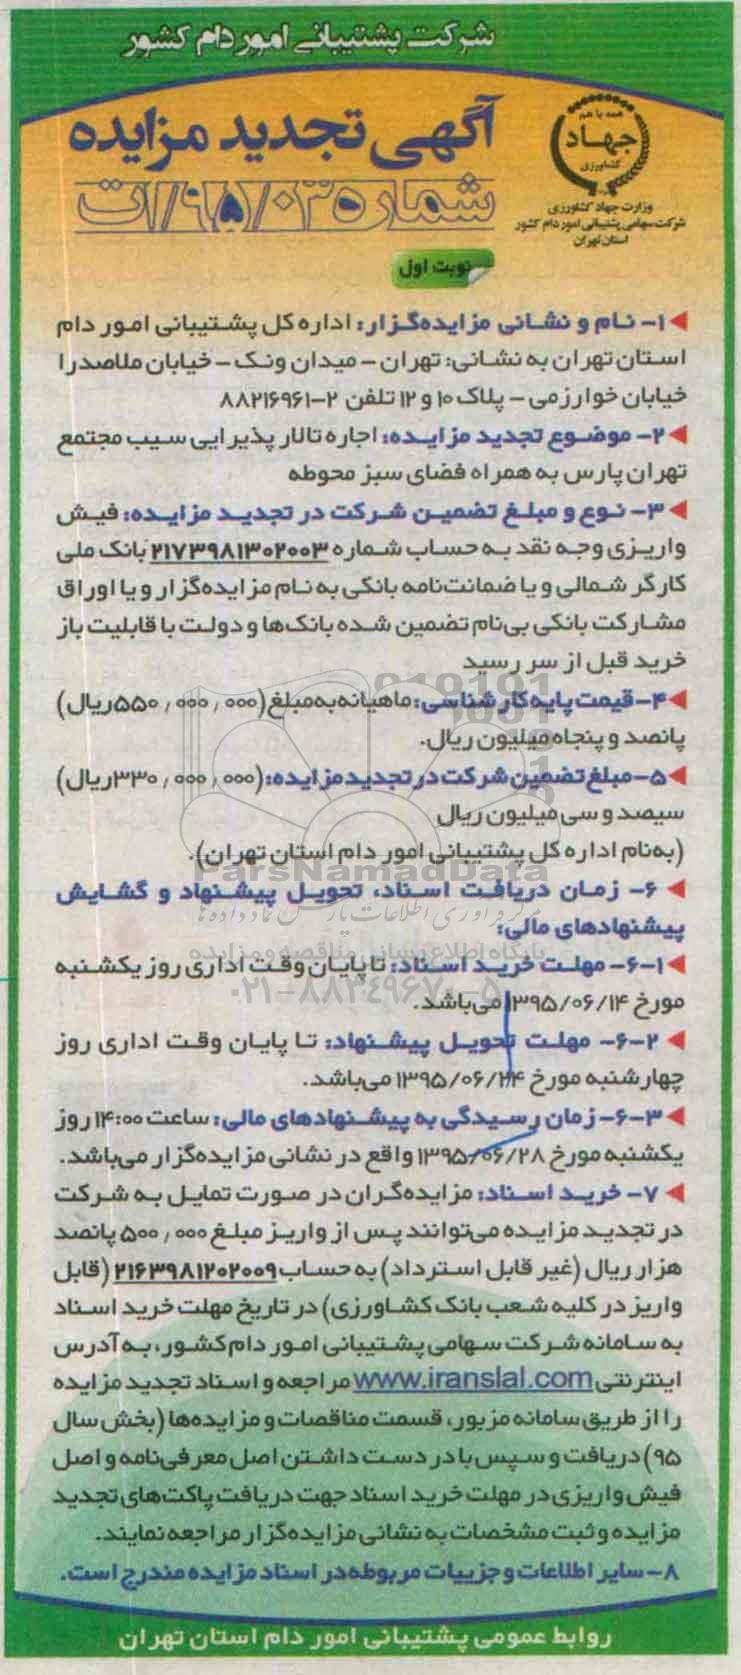 شرکت پشتیبانی امور دام کشور
آگهی تجدید مزایده
شماره ۹۵/۰۳/ات
همه با هم
جهاد
کشاورزی
وزارت جهاد کشاورزی
شرکت سهامی پشتیبانی امور دام کشور
استان تهران
نوبت اول
۱- نام و نشانی مزایده‌گزار: اداره کل پشتیبانی امور دام
استان تهران به نشانی: تهران – میدان ونک – خیابان ملاصدرا
خیابان خوارزمی – پلاک ۱۰ و ۱۲ تلفن ۲-۸۸۲۱۶۹۶۱
۲- موضوع تجدید مزایده: اجاره تالار پذیرایی سیب مجتمع
تهران پارس به همراه فضای سبز محوطه
۳- نوع و مبلغ تضمین شرکت در تجدید مزایده: فیش
واریزی وجه نقد به حساب شماره ۲۱۷۳۹۸۱۳۰۲۰۰۳ بانک ملی
کارگر شمالی و یا ضمانت‌نامه بانکی به نام مزایده‌گزار و یا اوراق
مشارکت بانکی بی‌نام تضمین شده بانک‌ها و دولت با قابلیت باز
خرید قبل از سر رسید
۴- قیمت پایه کارشناسی: ماهیانه به مبلغ (۵۵۰,۰۰۰,۰۰۰ ریال)
پانصد و پنجاه میلیون ریال.
۵- مبلغ تضمین شرکت در تجدید مزایده: (۳۳۰,۰۰۰,۰۰۰ ریال)
سیصد و سی میلیون ریال
(به‌نام اداره کل پشتیبانی امور دام استان تهران).
ParsNamadData
۶- زمان دریافت اسناد، تحویل پیشنهاد و گشایش
پیشنهادهای مالی:
پایگاه اطلاع رسانی مناقصه و مزایده
۶-۱- مهلت خرید اسناد: تا پایان وقت اداری روز یکشنبه
۰۲۱-۸۸۳۴۹۶۷۰-۵
مورخ ۱۳۹۵/۰۶/۱۴ می‌باشد.
۶-۲- مهلت تحویل پیشنهاد: تا پایان وقت اداری روز
چهارشنبه مورخ ۱۳۹۵/۰۶/۲۴ می‌باشد.
۶-۳- زمان رسیدگی به پیشنهادهای مالی: ساعت ۱۴:۰۰ روز
یکشنبه مورخ ۱۳۹۵/۰۶/۲۸ واقع در نشانی مزایده‌گزار می‌باشد.
۷- خرید اسناد: مزایده‌گران در صورت تمایل به شرکت
در تجدید مزایده می‌توانند پس از واریز مبلغ ۵۰۰,۰۰۰ پانصد
هزار ریال (غیر قابل استرداد) به حساب ۲۱۶۳۹۸۱۲۰۲۰۰۹ (قابل
واریز در کلیه شعب بانک کشاورزی) در تاریخ مهلت خرید اسناد
به سامانه شرکت سهامی پشتیبانی امور دام کشور، به آدرس
اینترنتی www.iranslal.com مراجعه و اسناد تجدید مزایده
را از طریق سامانه مزبور، قسمت مناقصات و مزایده‌ها (بخش سال
۹۵) دریافت و سپس با در دست داشتن اصل معرفی‌نامه و اصل
فیش واریزی در مهلت خرید اسناد جهت دریافت پاکت‌های تجدید
مزایده و ثبت مشخصات به نشانی مزایده‌گزار مراجعه نمایند.
۸- سایر اطلاعات و جزییات مربوطه در اسناد مزایده مندرج است.
روابط عمومی پشتیبانی امور دام استان تهران